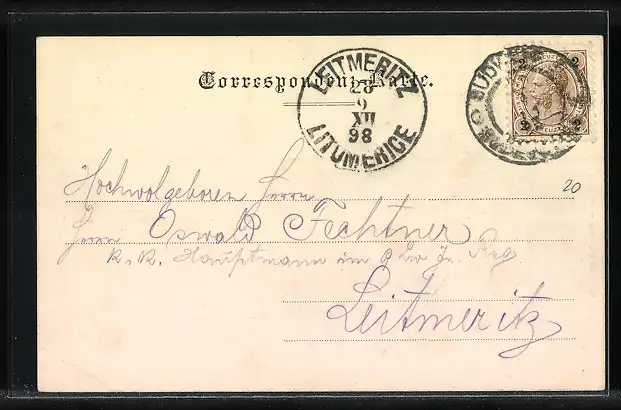 Correspondenz-Karte.
LEITMERITZ
28
9
XII
98
LITOMĚŘICE
BUDW
2 2
2 2
20
Hochwolgeboren Herrn
Herrn Oswald Fechtner
k. k. Hauptmann im Reg
Leitmeritz